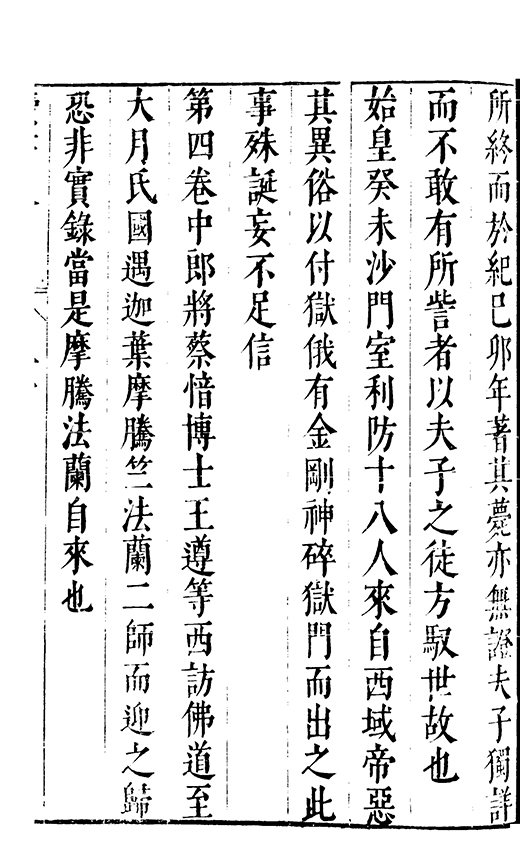 所終而於紀巳卯年著其薨亦無證夫子獨詳
而不敢有所訾者以夫子之徒方馭世故也
始皇癸未沙門室利防十八人來自西域帝惡
其異俗以付獄俄有金剛神碎獄門而出之此
事殊誕妄不足信
第四卷中郎將蔡愔博士王遵等西訪佛道至
大月氏國遇迦葉摩騰竺法蘭二師而迎之歸
恐非實錄當是摩騰法蘭自來也